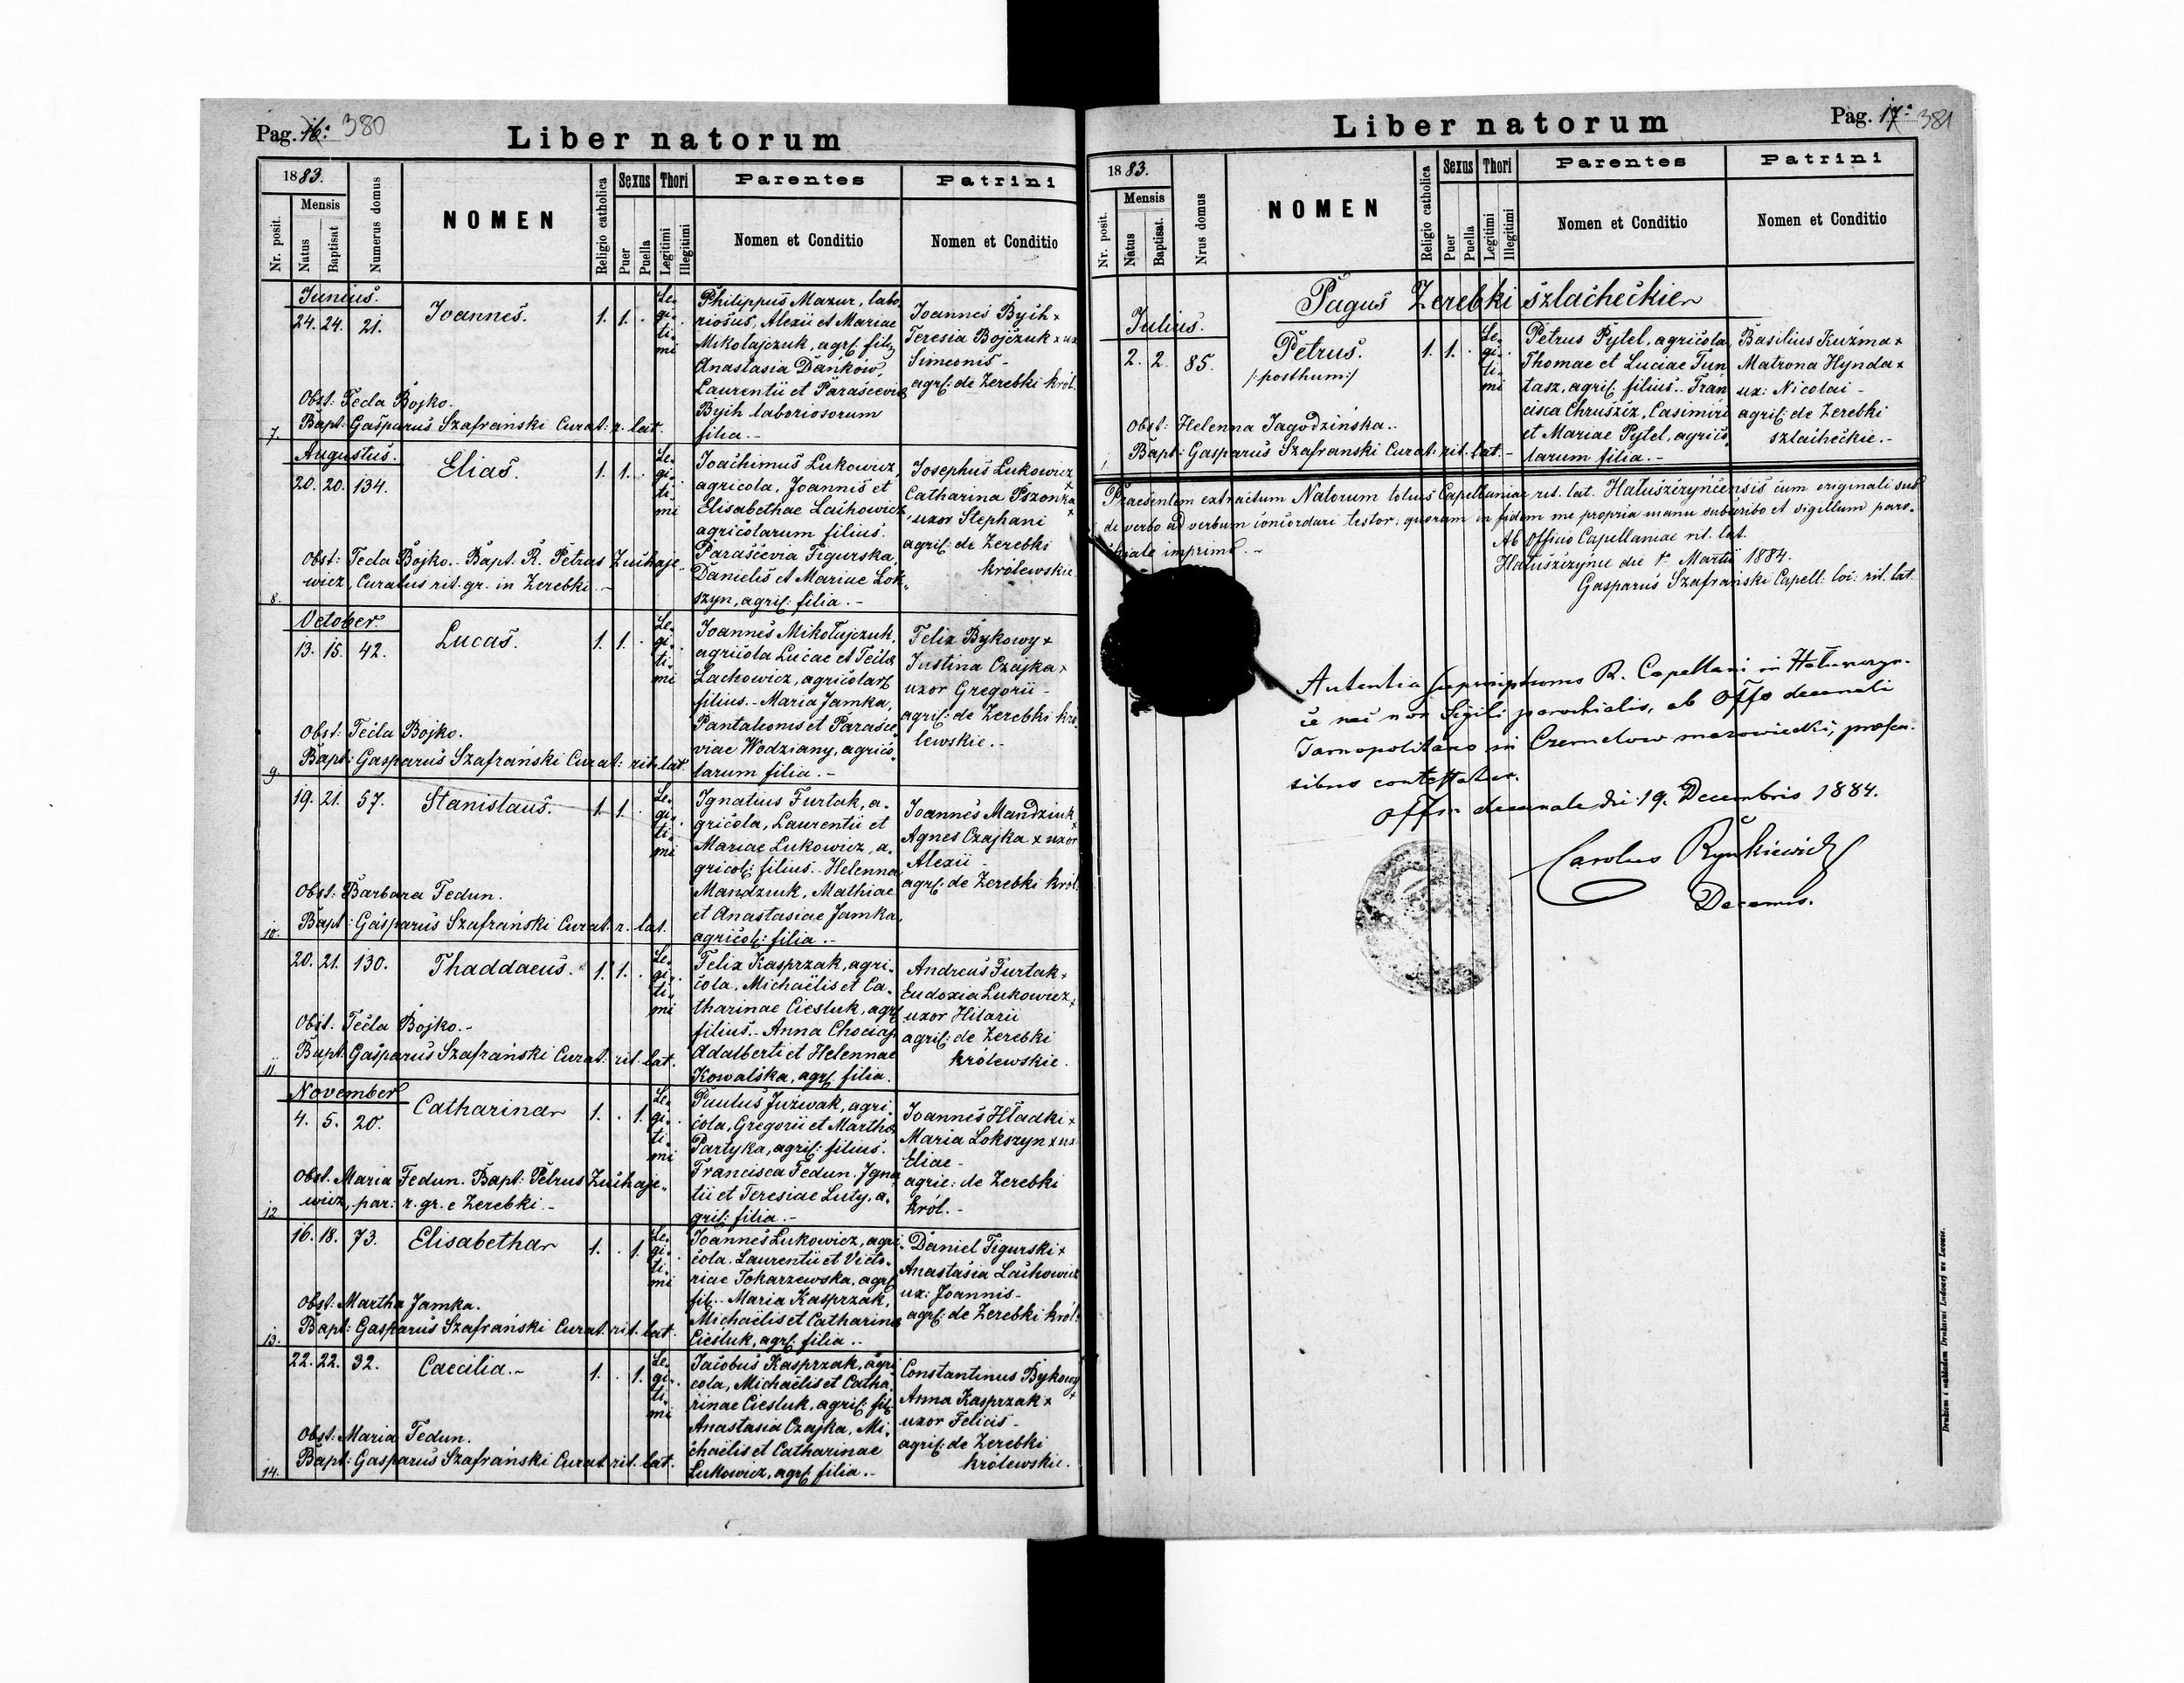 Pag. 16. 380
Liber natorum
1883.
Nr. posit.
Mensis
Natus
Baptisat
Numerus domus
NOMEN
Religio catholica
Sexus
Puer
Puella
Thori
Legitimi
Illegitimi
Parentes
Nomen et Conditio
Patrini
Nomen et Conditio
Junius.
24. 24. 21.
Joannes.
1. 1. .
Le-
gi-
ti-
mi
Philippus Mazur, labo-
riosus, Alexii et Mariae
Mikołajczuk, agr: fil:
Anastasia Dańków,
Laurentii et Parascevia
Bych laboriosorum
filia.-
Joannes Bych x
Teresia Bojczuk x ux
Simeonis -
agr: de Zerebki król.
Obst: Tecla Bojko.
Bapt: Gasparus Szafrański Curat: r. lat.
7.
Augustus.
20. 20. 134.
Elias.
1. 1. .
Le-
gi-
ti-
mi
Joachimus Lukowicz,
agricola, Joannis et
Elisabethae Lachowicz
agricolarum filius.
Parascevia Figurska,
Danielis et Mariae Lok-
szyn, agric: filia.-
Josephus Lukowicz
x
Catharina Pszonka
x
uxor Stephani
agric: de Zerebki
królewskie
Obst: Tecla Bojko.- Bapt. R. Petrus Zuchaje-
wicz, Curatus rit. gr. in Zerebki.-
8.
October.
13. 15. 42.
Lucas.
1. 1. .
Le-
gi-
ti-
mi
Joannes Mikołajczuk,
agricola Lucae et Teclae
Lachowicz, agricolar:
filius.- Maria Jamka,
Pantaleonis et Parasce-
viae Wodziany, agrico-
larum filia.-
Felix Bykowy x
Justina Czajka x
uxor Gregorii -
agric: de Zerebki kró-
lewskie.-
Obst: Tecla Bojko.
Bapt: Gasparus Szafrański Curat: rit. lat.
9.
19. 21. 57.
Stanislaus.
1. 1. .
Le-
gi-
ti-
mi
Ignatius Furtak, a-
gricola, Laurentii et
Mariae Lukowicz, a-
gricol: filius.- Helenna
Mandziuk, Mathiae
et Anastasiae Jamka,
agricol: filia.-
Joannes Mandziuk
x
Agnes Czajka x uxor
Alexii -
agr: de Zerebki król.
Obst: Barbara Fedun.
Bapt: Gasparus Szafrański Curat. r. lat.
10.
20. 21. 130.
Thaddaeus.
1. 1. .
Le-
gi-
ti-
mi
Felix Kasprzak, agri-
cola, Michaëlis et Ca-
tharinae Ciesluk, agr:
filius.- Anna Chociaj
Adalberti et Helennae
Kowalska, agr: filia.
Andreus Furtak x
Eudoxia Lukowicz x
uxor Hilarii
agric: de Zerebki
królewskie.
Obst. Tecla Bojko.-
Bapt: Gasparus Szafrański Curat: rit. lat.
11.
November
4. 5. 20.
Catharina
1. . 1.
Le-
gi-
ti-
mi
Paulus Juźwak, agri-
cola, Gregorii et Marthae
Partyka, agric: filius.
Francisca Fedun, Igna-
tii et Teresiae Luty, a-
gric: filia.-
Joannes Hładki x
Maria Lokszyn x ux
Eliae -
agric: de Zerebki
król.-
Obst. Maria Fedun. Bapt: Petrus Zuchaje-
wicz, par: r. gr. e Zerebki.-
12
16. 18. 73.
Elisabetha
1. . 1.
Le-
gi-
ti-
mi
Joannes Lukowicz, agri-
cola, Laurentii et Victo-
riae Tokarzewska, agr:
fil:.- Maria Kasprzak,
Michaëlis et Catharinae
Ciesluk, agr: filia..
Daniel Figurski x
Anastasia Lachowicz
ux: Joannis -
agr: de Zerebki król.
Obst: Martha Jamka.
Bapt: Gasparus Szafrański Curat. rit. lat.
13.
22. 22. 32.
Caecilia.-
1. . 1.
Le-
gi-
ti-
mi
Jacobus Kasprzak, agri
cola, Michaëlis et Catha-
rinae Ciesluk, agric: fil:
Anastasia Czajka, Mi-
chaëlis et Catharinae
Lukowicz, agr: filia.-
Constantinus Bykowy
x
Anna Kasprzak x
uxor Felicis -
agric: de Zerebki
królewskie.
Obst: Maria Fedun.
Bapt: Gasparus Szafrański Curat. rit. lat.
14.
Pag. 17. 381
Liber natorum
1883.
Nr. posit.
Mensis
Natus
Baptisat.
Nrus domus
NOMEN
Religio catholica
Sexus
Puer
Puella
Thori
Legitimi
Illegitimi
Parentes
Nomen et Conditio
Patrini
Nomen et Conditio
Pagus Zerebki szlacheckie
Julius.
2. 2. 85.
Petrus.
/:posthum:/
1. 1. .
Le-
gi-
ti-
mi
Petrus Pytel, agricola,
Thomae et Luciae Fun
tasz, agric: filius.- Fran
cisca Chruszcz, Casimiri
et Mariae Pytel, agrico-
larum filia.-
Basilius Kuźma x
Matrona Hynda x
ux: Nicolai -
agric: de Zerebki
szlacheckie.-
Obst: Helenna Jagodzińska.-
Bapt: Gasparus Szafrański Curat: rit. lat.-
1.
Praesentem extractum Natorum totius Capellaniae rit. lat. Hałuszczyncensis cum originali suo
de verbo ad verbum concordari testor, quorum in fidem me propria manu subscribo et sigillum paro-
chiale imprimo.-
Ab Officio Capellaniae rit. lat.
Hałuszczyńce die 1. Martii 1884.
Gasparus Szafrański Capell: loc: rit. lat.
R. Capellani in Hałuszczyn-
ce nec non Sigili parochialis, ab Offo decanali
Tarnopolitano in Czernelow mazowiecki, praesen-
tibus contestatur.
Offm decanale die 19. Decembris 1884.
Carolus Rynkiewicz
Decanus.
Drukiem i nakładem Drukarni Ludowej we Lwowie.